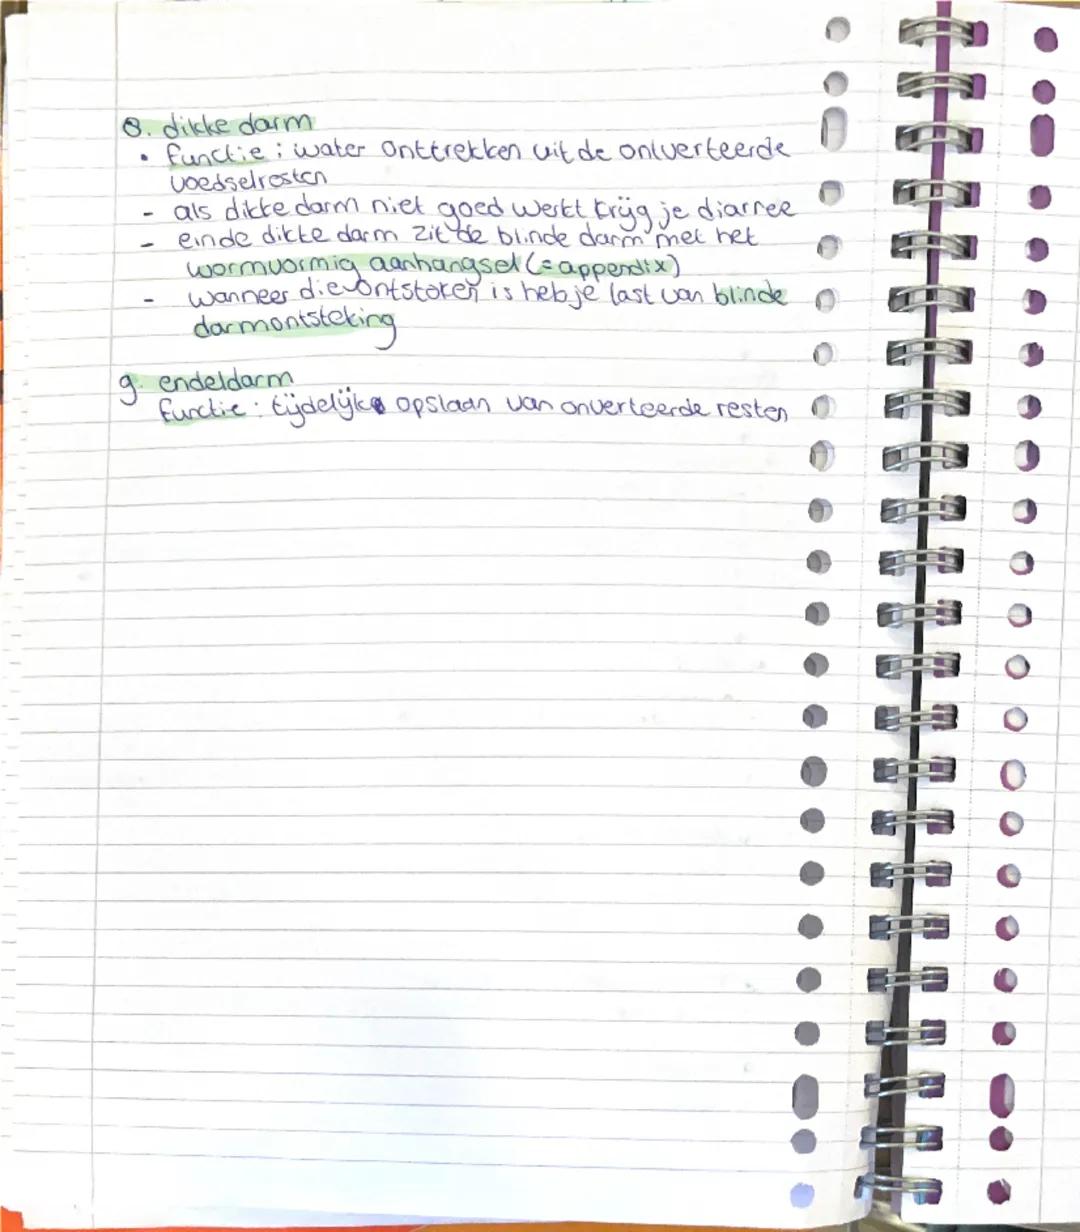 8. dikke darm
• functie : water onttrekken uit de onverteerde
voedselresten
- als dikke darm niet goed werkt krijg je diarree
- einde dikke darm zit de blinde darm met het
wormvormig aanhangsel (= appendix)
- wanneer die ontstoken is heb je last van blinde
darmontsteking
9. endeldarm
functie : tijdelijke opslaan van onverteerde resten